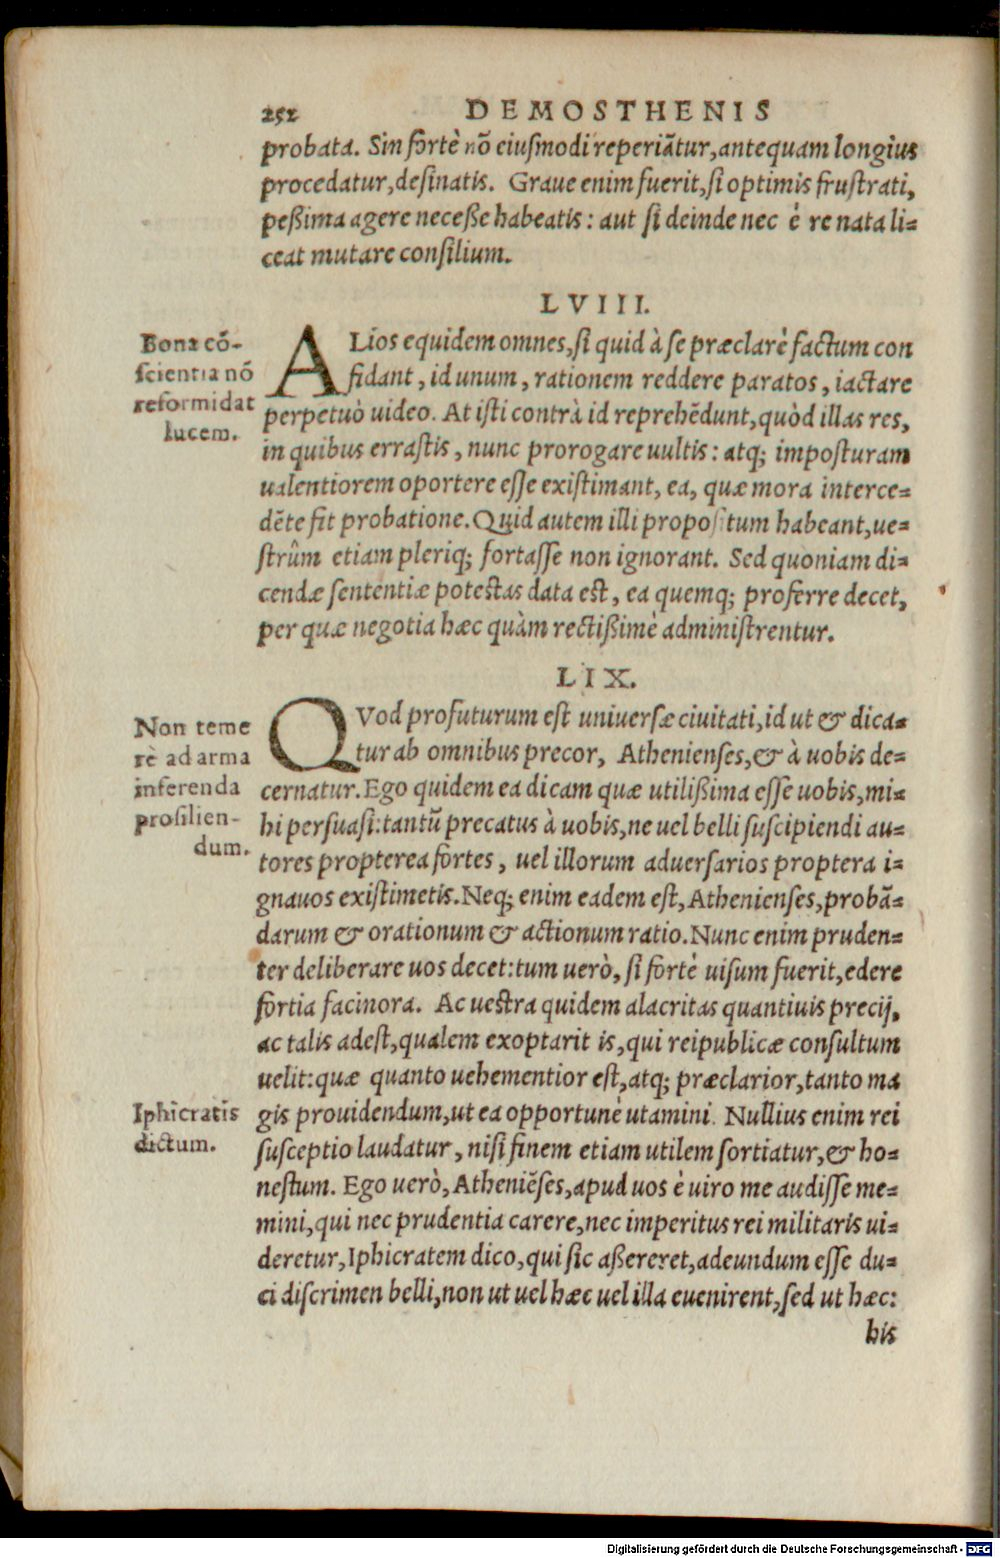 252 DEMOSTHENIS
probata. Sin fortè nõ eiuſmodi reperiãtur, antequam longius
procedatur, deſinatis. Graue enim fuerit, ſi optimis fruſtrati,
peßima agere neceße habeatis: aut ſi deinde nec è re nata li-
ceat mutare conſilium.
LVIII.
Bona cõ-
ſcientia nõ
reformidat
lucem.
ALios equidem omnes, ſi quid à ſe præclarè factum con
fidant, id unum, rationem reddere paratos, iactare
perpetuò uideo. At iſti contrà id reprehẽdunt, quòd illas res,
in quibus erraſtis, nunc prorogare uultis: atq; impoſturam
ualentiorem oportere eſſe exiſtimant, ea, quæ mora interce-
dẽte fit probatione. Quid autem illi propoſitum habeant, ue-
ſtrûm etiam pleriq; fortaſſe non ignorant. Sed quoniam di-
cendæ ſententiæ poteſtas data eſt, ea quemq; proferre decet,
per quæ negotia hæc quàm rectißimè adminiſtrentur.
LIX.
Non teme
rè ad arma
inferenda
proſilien-
dum.
QVod profuturum eſt uniuerſæ ciuitati, id ut & dica-
tur ab omnibus precor, Athenienſes, & à uobis de-
cernatur. Ego quidem ea dicam quæ utilißima eſſe uobis, mi-
hi perſuaſi: tantũ precatus à uobis, ne uel belli ſuſcipiendi au-
tores propterea fortes, uel illorum aduerſarios proptera i-
gnauos exiſtimetis. Neq; enim eadem eſt, Athenienſes, probã-
darum & orationum & actionum ratio. Nunc enim pruden-
ter deliberare uos decet: tum uerò, ſi fortè uiſum fuerit, edere
fortia facinora. Ac ueſtra quidem alacritas quantiuis precij,
ac talis adeſt, qualem exoptarit is, qui reipublicæ conſultum
uelit: quæ quanto uehementior eſt, atq; præclarior, tanto ma
gis prouidendum, ut ea opportunè utamini. Nullius enim rei
ſuſceptio laudatur, niſi finem etiam utilem ſortiatur, & ho-
neſtum. Ego uerò, Atheniẽſes, apud uos è uiro me audiſſe me-
mini, qui nec prudentia carere, nec imperitus rei militaris ui-
deretur, Iphicratem dico, qui ſic aßereret, adeundum eſſe du-
ci diſcrimen belli, non ut uel hæc uel illa euenirent, ſed ut hæc:
Iphicratis
dictum.
his
Digitalisierung gefördert durch die Deutsche Forschungsgemeinschaft - DFG